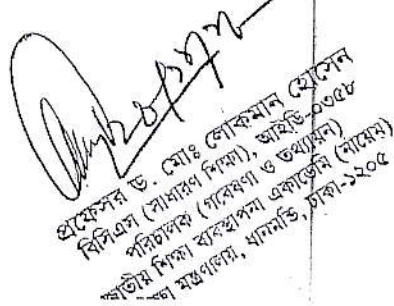 প্রফেসর ড. মোঃ লোকমান হোসেন
বিসিএস (সাধারণ শিক্ষা), আইডি-০৩৫৮
পরিচালক (গবেষণা ও তথ্যায়ন)
জাতীয় শিক্ষা ব্যবস্থাপনা একাডেমি (নায়েম)
মন্ত্রণালয়, ধানমন্ডি, ঢাকা-১২০৫